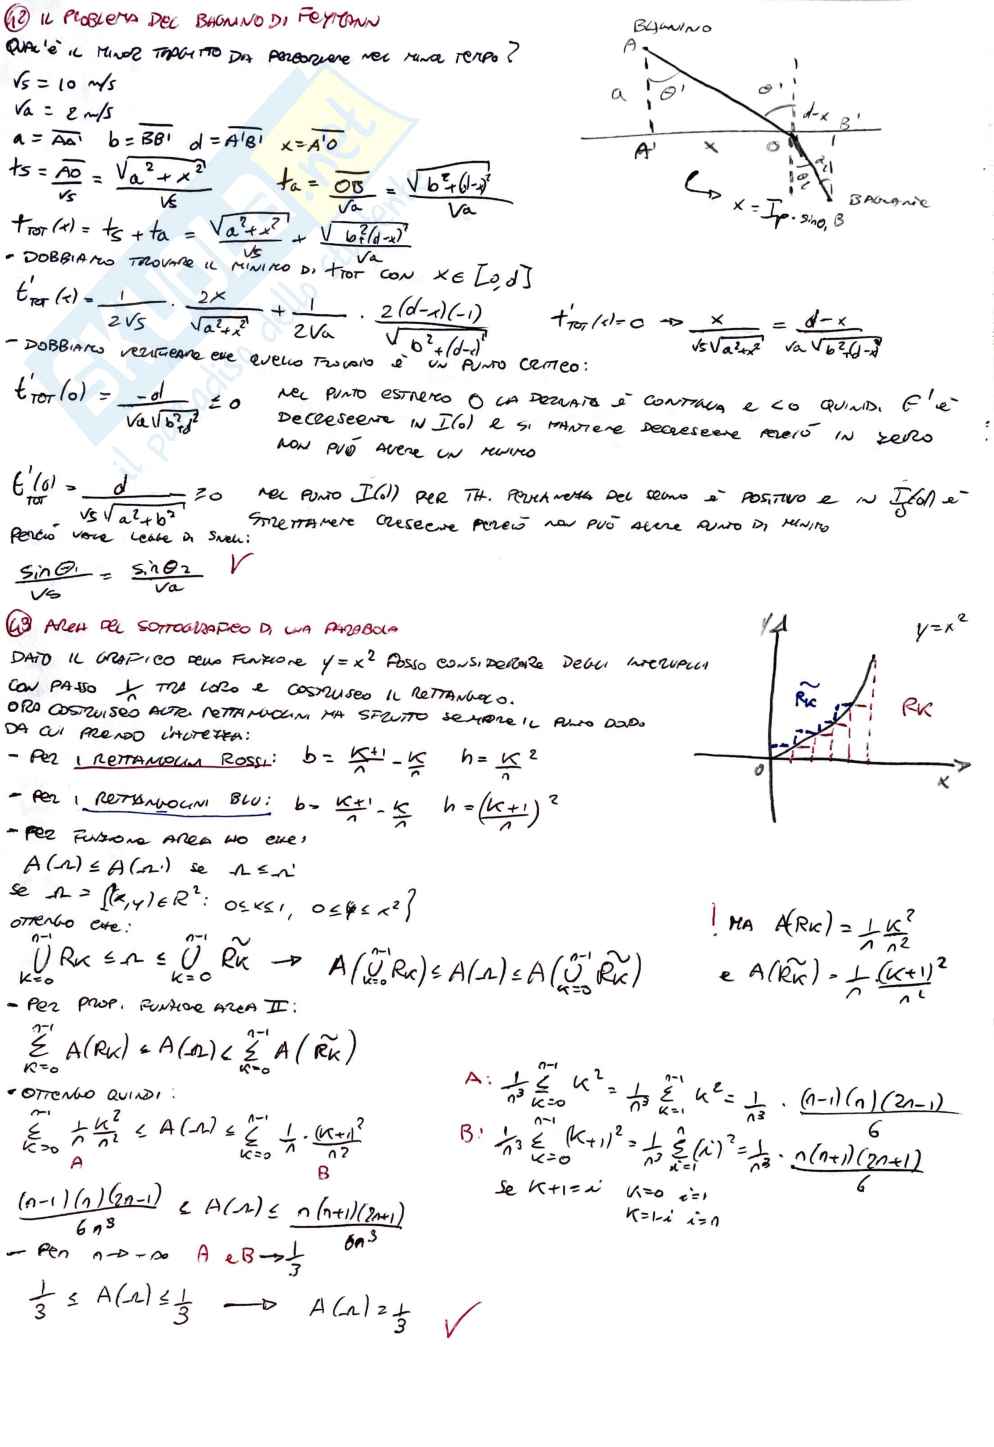 42 IL PROBLEMA DEL BAGNINO DI FEYMANN
QUAL'È IL MINOR TRAGITTO DA PERCORRERE NEL MINOR TEMPO?
vs = 10 m/s
va = 2 m/s
a = AA' b = BB' d = A'B' x = A'O
ts = AO/vs = √(a²+x²)/vs ta = OB/va = √(b²+(d-x)²)/va
tTOT(x) = ts + ta = √(a²+x²)/vs + √(b²+(d-x)²)/va
BAGNINO
A
a
θ'
θ'
d-x
B'
A'
x
O
θ2
B
BAGNANTE
x = Ip · sinθ1
- DOBBIAMO TROVARE IL MINIMO DI tTOT CON x ∈ [0,d]
t'TOT(x) = 1/2vs · 2x/√(a²+x²) + 1/2va · 2(d-x)(-1)/√(b²+(d-x)²) t'TOT(x)=0 → x/vs√(a²+x²) = d-x/va√(b²+(d-x)²)
- DOBBIAMO VERIFICARE CHE QUELLO TROVATO È UN PUNTO CRITICO:
t'TOT(0) = -d/va√(b²+d²) ≤ 0 NEL PUNTO ESTREMO 0 LA DERIVATA È CONTINUA E <0 QUINDI t' È
DECRESCENTE IN I(0) E SI MANTIENE DECRESCENTE PERCIÒ IN ZERO
NON PUÒ AVERE UN MINIMO
t'TOT(d) = d/vs√(a²+b²) ≥ 0 NEL PUNTO I(d) PER TH. PERMANENZA DEL SEGNO È POSITIVO E IN I(d) È
STRETTAMENTE CRESCENTE PERCIÒ NON PUÒ AVERE PUNTO DI MINIMO
PERCIÒ VALE LEGGE DI SNELL:
sinθ1/vs = sinθ2/va ✓
43 AREA DEL SOTTOGRAFICO DI UNA PARABOLA
DATO IL GRAFICO DELLA FUNZIONE y=x² POSSO CONSIDERARE DEGLI INTERVALLI
CON PASSO 1/n TRA LORO E COSTRUISCO IL RETTANGOLO.
ORA COSTRUISCO ALTRI RETTANGOLINI MA SFRUTTO SEMPRE IL PUNTO DOPO
DA CUI PRENDO L'ALTEZZA:
- PER I RETTANGOLINI ROSSI: b = K+1/n - K/n h = K/n ²
- PER I RETTANGOLINI BLU: b = K+1/n - K/n h = (K+1/n)²
y
y=x²
R̃K
RK
O
x
- PER FUNZIONE AREA HO CHE:
A(Ω) ≤ A(Ω') se Ω ≤ Ω'
se Ω = {(x,y)∈R²: 0≤x≤1, 0≤y≤x²}
OTTENGO CHE:
⋃(K=0, n-1) RK ≤ Ω ≤ ⋃(K=0, n-1) R̃K → A(⋃(K=0, n-1) RK) ≤ A(Ω) ≤ A(⋃(K=0, n-1) R̃K)
! MA A(RK) = 1/n K²/n²
e A(R̃K) = 1/n · (K+1)²/n²
- PER PROP. FUNZIONE AREA II:
Σ(K=0, n-1) A(RK) ≤ A(Ω) ≤ Σ(K=0, n-1) A(R̃K)
- OTTENGO QUINDI:
Σ(K=0, n-1) 1/n K²/n² ≤ A(Ω) ≤ Σ(K=0, n-1) 1/n · (K+1)²/n²
A B
A: 1/n³ Σ(K=0, n-1) K² = 1/n³ Σ(K=1, n-1) K² = 1/n³ · (n-1)(n)(2n-1)/6
B: 1/n³ Σ(K=0, n-1) (K+1)² = 1/n³ Σ(i=1, n) (i)² = 1/n³ · n(n+1)(2n+1)/6
se K+1=i K=0 i=1
K=1-i i=n
(n-1)(n)(2n-1)/6n³ ≤ A(Ω) ≤ n(n+1)(2n+1)/6n³
- PER n→+∞ A e B → 1/3
1/3 ≤ A(Ω) ≤ 1/3 → A(Ω) = 1/3 ✓